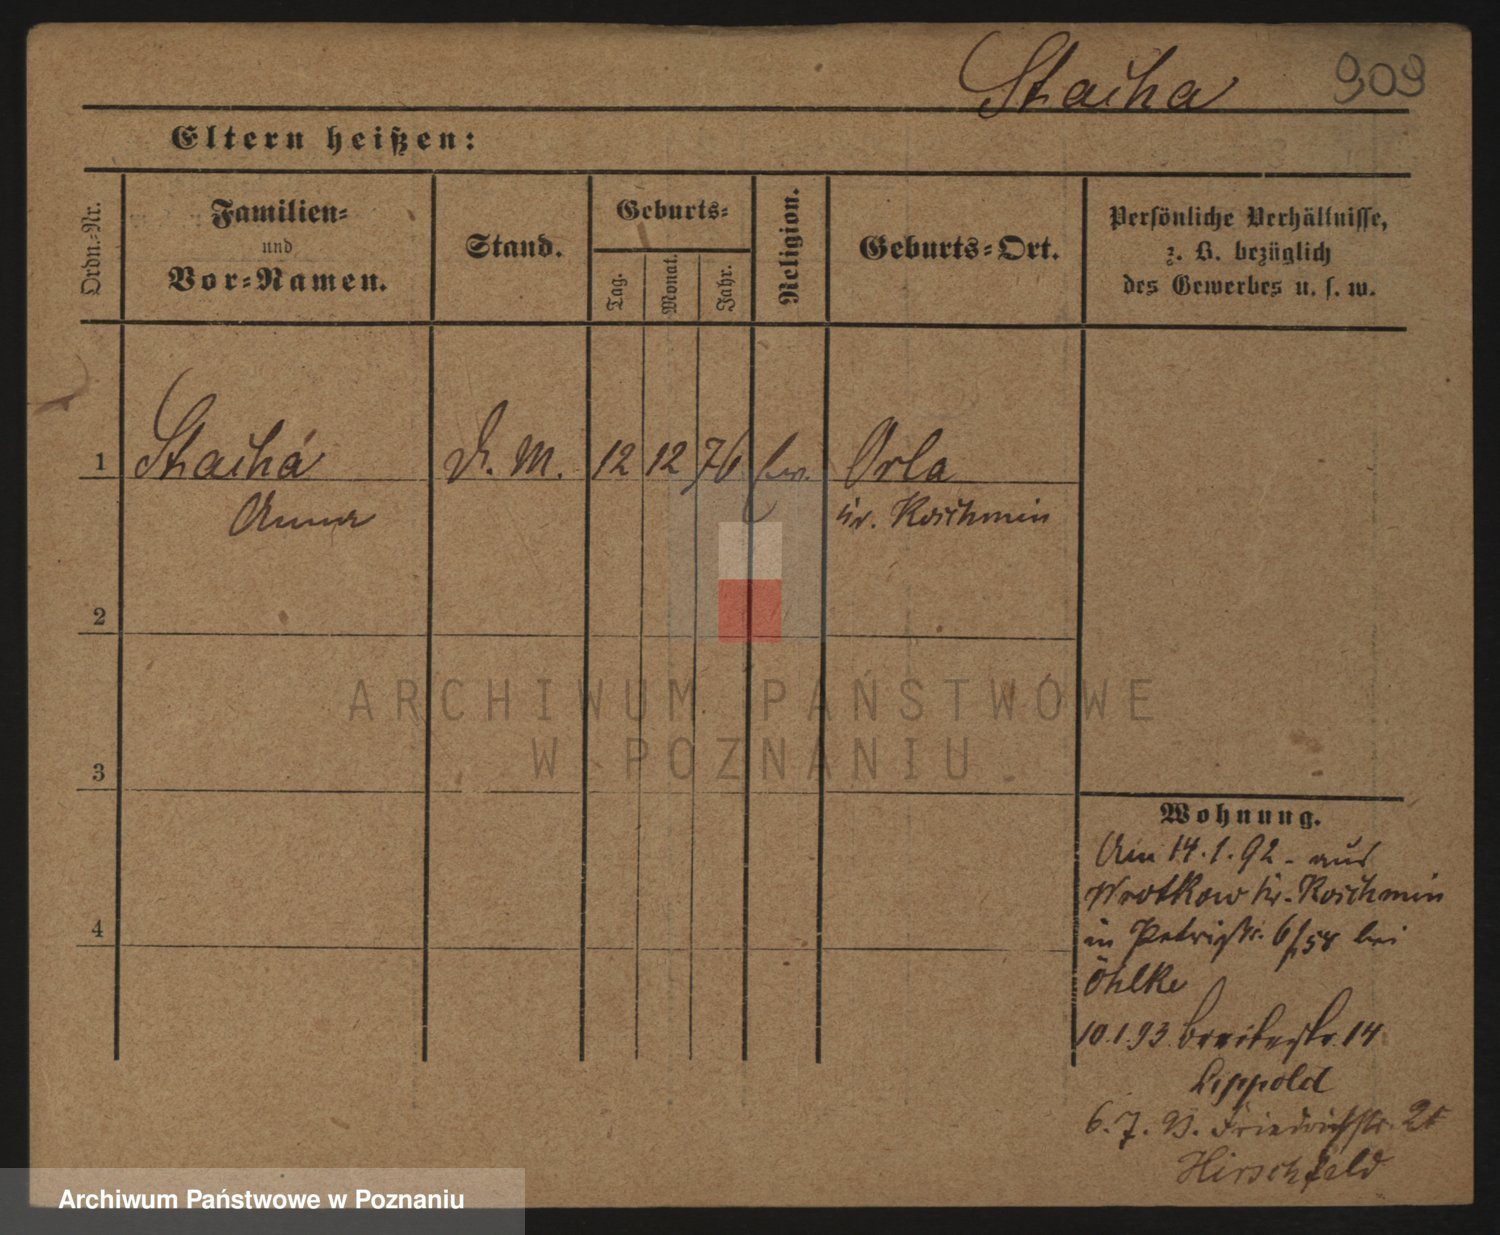 Stacha 909
Eltern heißen:
Ordn.-Nr.
Familien-
und
Vor-Namen.
Stand.
Geburts-
Tag.
Monat.
Jahr.
Religion.
Geburts-Ort.
Persönliche Verhältnisse,
z. B. bezüglich
des Gewerbes u. s. w.
1 D. M. 12 12 76 Orla
Anna Kr. Koschmin
2
3
4
ARCHIWUM PAŃSTWOWE
W POZNANIU
Wohnung.
Am 14.1.92. aus
Wrotkow Kr. Koschmin
in Petristr. bei
Öhlke
10.1.93. Breitestr. 14
Lippold
6.7.93. Friedrichstr.
Hirschfeld
Archiwum Państwowe w Poznaniu